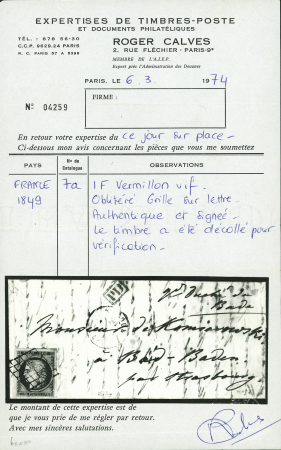 EXPERTISES DE TIMBRES-POSTE
ET DOCUMENTS PHILATÉLIQUES
TÉL. : 878 56-30
C.C.P. 9629.24 PARIS
R. C. PARIS 57 A 6398
ROGER CALVES
2, RUE FLÉCHIER - PARIS-9e
MEMBRE DE L'A.I.E.P.
Expert près l'Administration des Douanes
PARIS, LE 6. 3. 1974
N° 04259
FIRME :
En retour votre expertise du ce jour sur place -
Ci-dessous mon avis concernant les pièces que vous me soumettez
PAYS N° du Catalogue OBSERVATIONS
FRANCE 7a 1F Vermillon vif.
1849 Oblitéré Grille sur lettre.
Authentique et signé.
Le timbre a été décollé pour
vérification.
Bade
Monsieur de
à Bade-Baden
par Strasbourg
Le montant de cette expertise est de
que je vous prie de me régler par retour.
Avec mes sincères salutations.